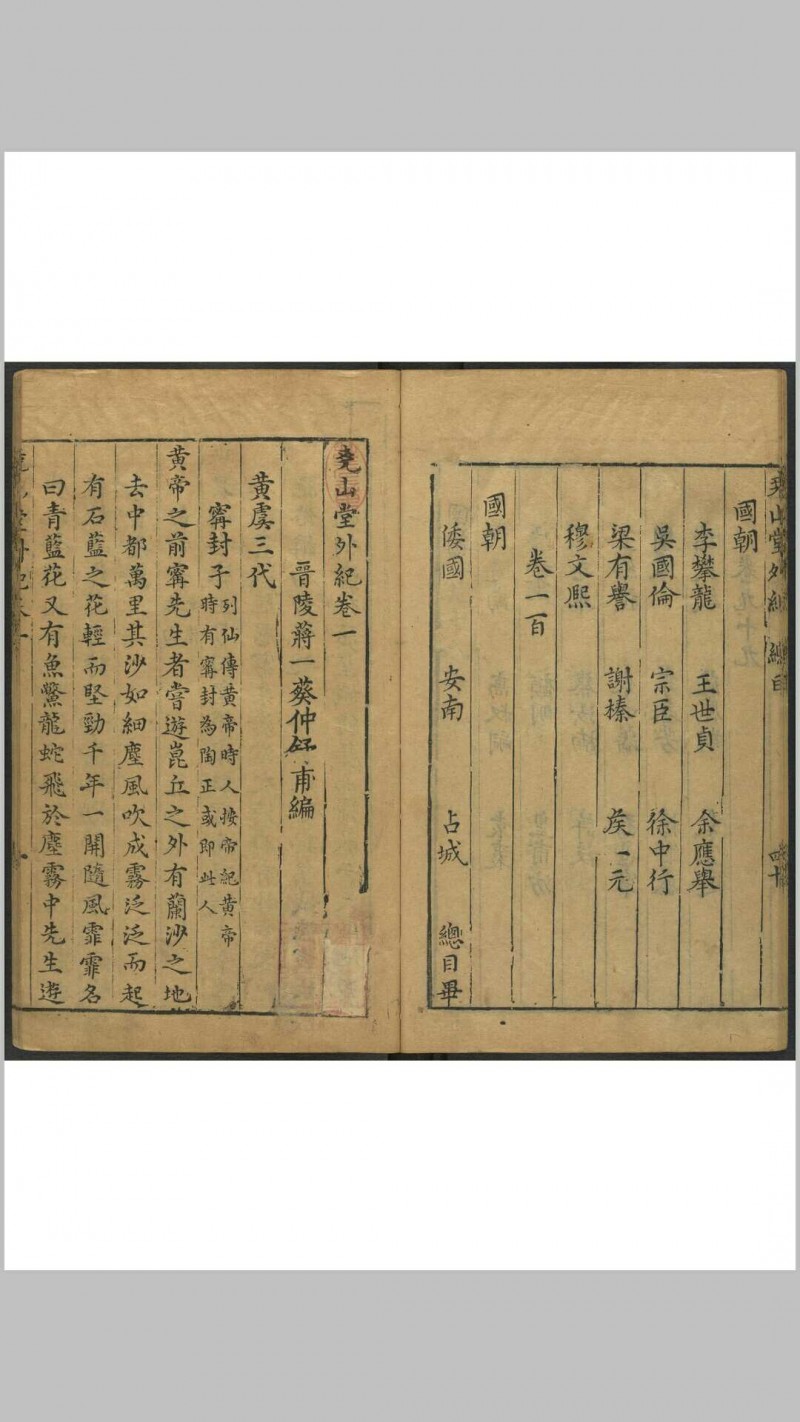 堯山堂外紀 總目
國朝
李攀龍 王世貞 余應舉
吳國倫 宗臣 徐中行
梁有譽 謝榛 矦一元
穆文熈
卷一百
國朝
倭國 安南 占城 總目畢
堯山堂外紀卷一
晋陵蔣一葵仲舒甫編
黃虞三代
甯封子 列仙傳黃帝時人按帝紀黃帝
時有甯封為陶正或即此人
黃帝之前甯先生者嘗遊崑丘之外有蘭沙之地
去中都萬里其沙如細塵風吹成霧泛泛而起
有石藍之花輕而堅勁千年一開隨風霏霏名
曰青藍花又有魚鱉龍蛇飛於塵霧中先生遊